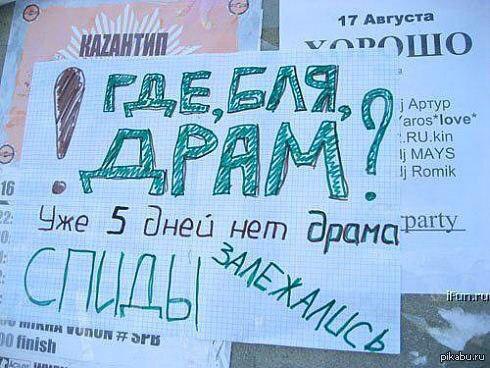 КАZАНТИП
17 Августа
ХОРОШО
! ГДЕ, БЛЯ,
ДРАМ?
j Артур
Yaros*love*
.RU.kin
dj MAYS
dj Romik
Уже 5 дней нет драма
party
СПИДЫ
ЗАЛЕЖАЛИСЬ
# SPB
00 finish
ifun.ru
pikabu.ru